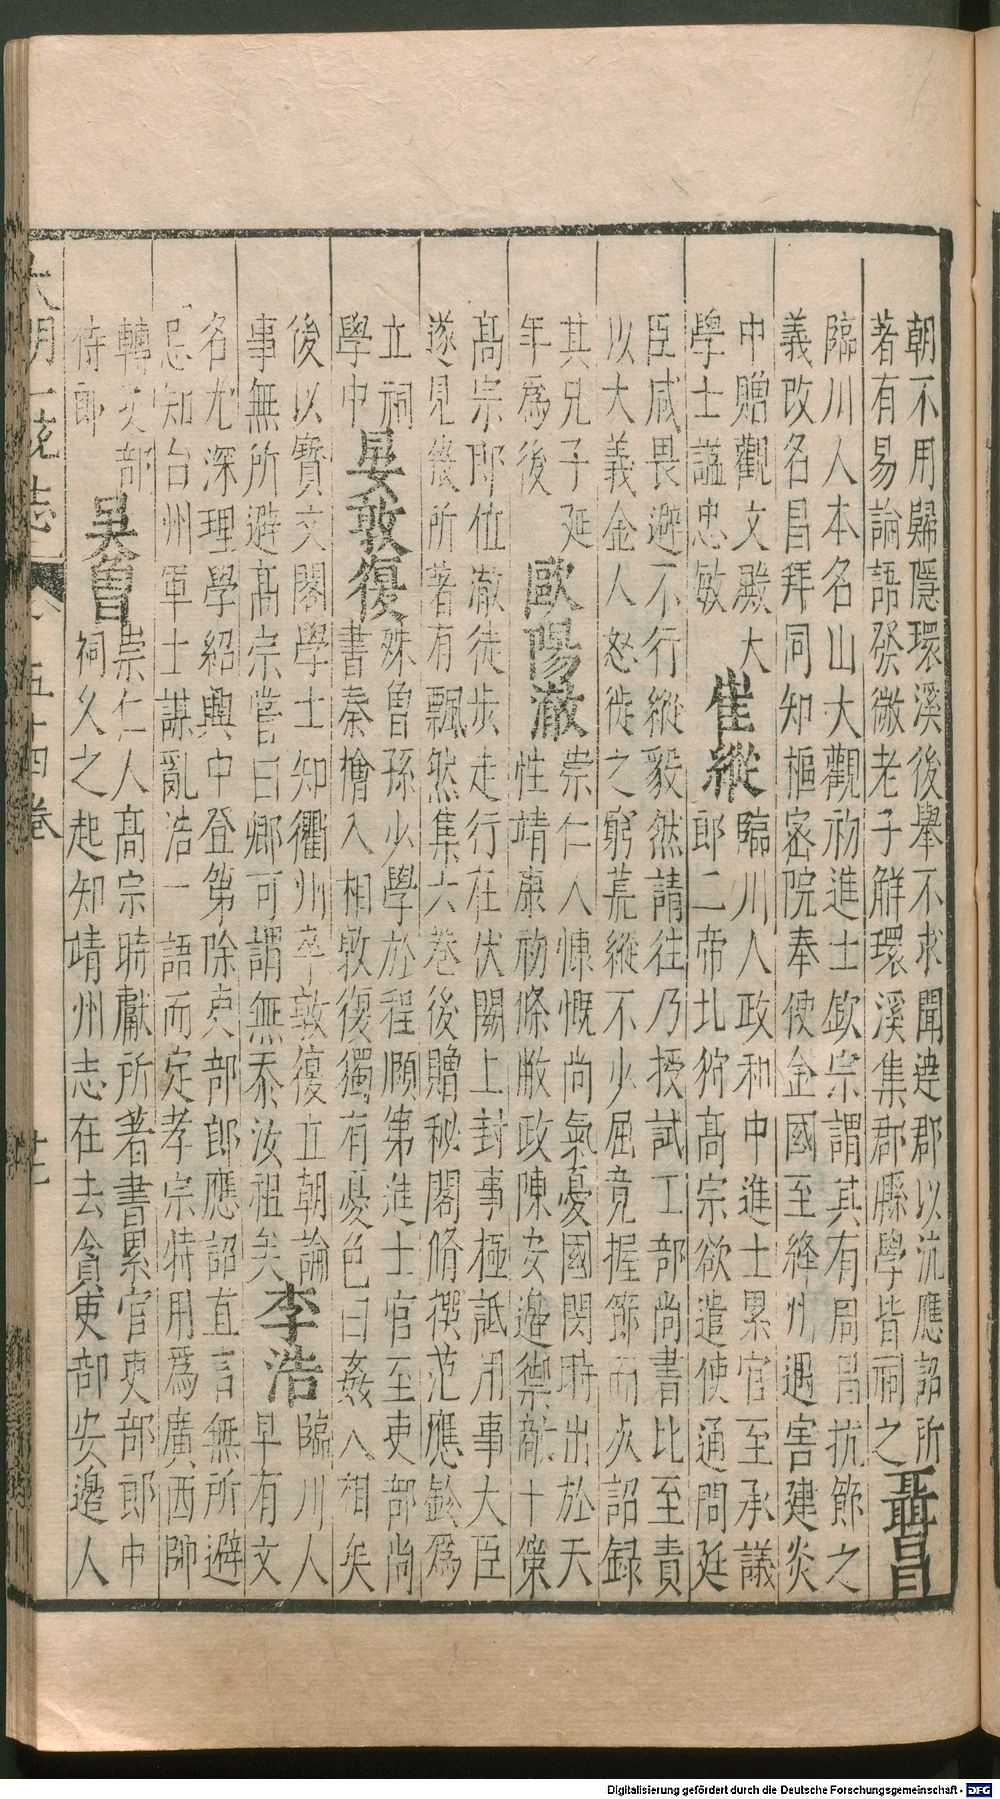 朝不用歸隱環溪後舉不求聞達郡以沆應詔所
著有易論語發微老子解環溪集郡縣學皆祠之
聶昌
臨川人本名山大觀初進士欽宗謂其有周昌抗節之
義改名昌拜同知樞密院奉使金國至絳州遇害建炎
中贈觀文殿大
學士謚忠敏
崔縱
臨川人政和中進士累官至承議
郎二帝北狩高宗欲遣使通問廷
臣咸畏避不行縱毅然請往乃授試工部尚書比至責
以大義金人怒徙之窮荒縱不少屈竟握節而死詔録
其兄子延
年爲後
歐陽澈
崇仁人慷慨尚氣憂國閔時出於天
性靖康初條敝政陳安邊禦敵十策
高宗即位澈徒步走行在伏闕上封事極詆用事大臣
遂見僇所著有飄然集六卷後贈秘閣脩撰范應鈴爲
立祠
學中
晏敦復
殊曾孫少學於程頤第進士官至吏部尚
書秦檜入相敦復獨有憂色曰姦人相矣
後以寶文閣學士知衢州卒敦復立朝論
事無所避高宗嘗曰卿可謂無忝汝祖矣
李浩
臨川人
早有文
名尤深理學紹興中登第除吏部郎應詔直言無所避
忌知台州軍士謀亂浩一語而定孝宗特用爲廣西帥
轉吏部
侍郎
吳曾
崇仁人高宗時獻所著書累官吏部郎中
祠久之起知靖州志在去貪吏部安邊人
大明一統志
五十四卷